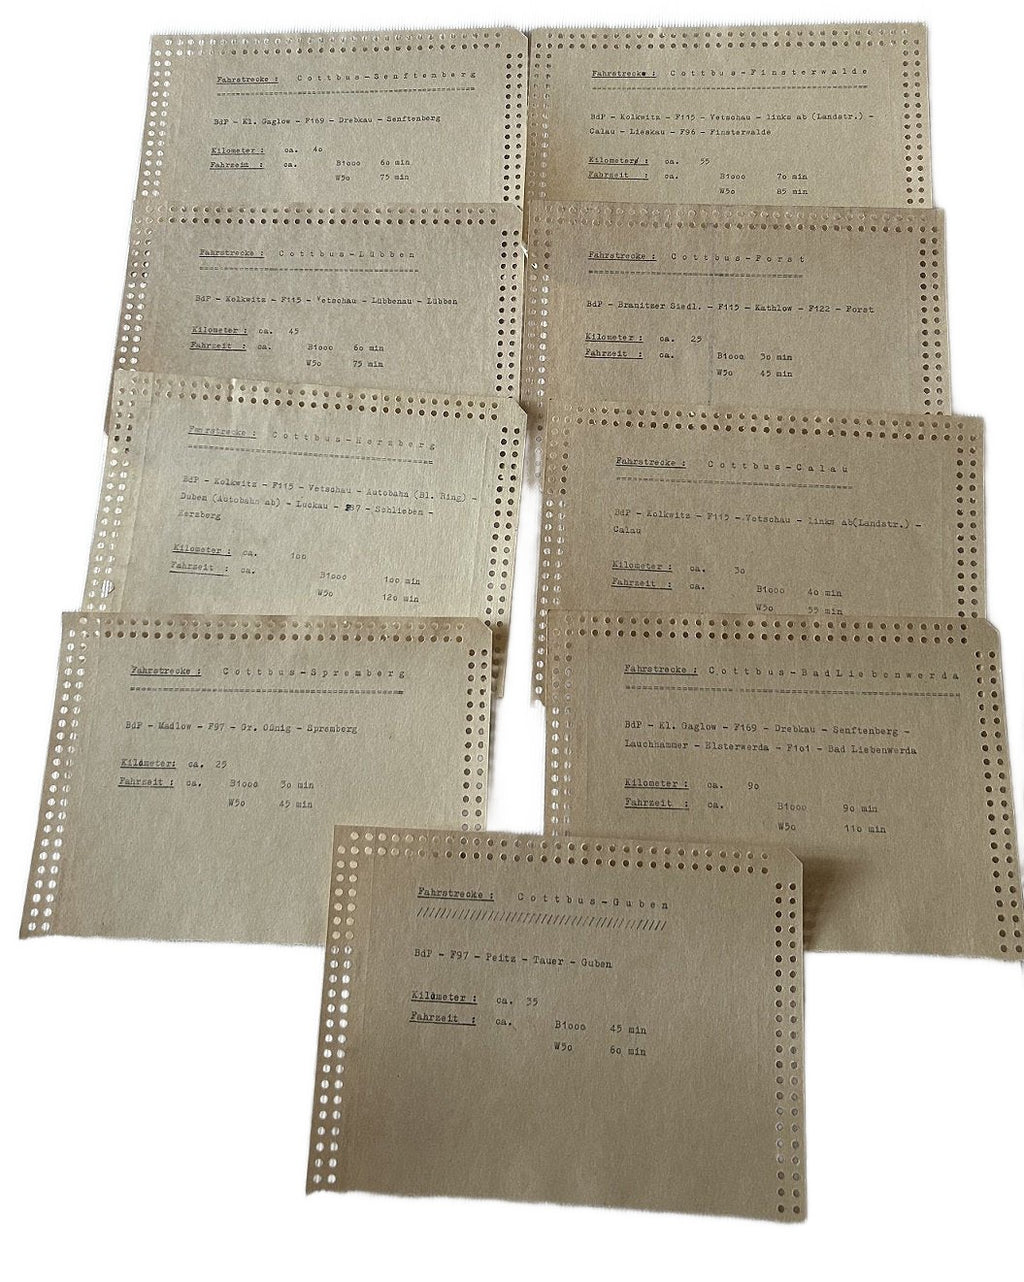 Fahrstrecke : C o t t b u s - S e n f t e n b e r g
BdP - Kl. Gaglow - F169 - Drebkau - Senftenberg
Kilometer : ca. 4o
Fahrzeit : ca. B1ooo 6o min
W5o 75 min
Fahrstrecke : C o t t b u s - F i n s t e r w a l d e
BdP - Kolkwitz - F115 - Vetschau - links ab (Landstr.) -
Calau - Lieskau - F96 - Finsterwalde
Kilometer : ca. 55
Fahrzeit : ca. B1ooo 7o min
W5o 85 min
Fahrstrecke : C o t t b u s - L ü b b e n
BdP - Kolkwitz - F115 - Vetschau - Lübbenau - Lübben
Kilometer : ca. 45
Fahrzeit : ca. B1ooo 6o min
W5o 75 min
Fahrstrecke : C o t t b u s - F o r s t
BdP - Branitzer Siedl. - F115 - Kathlow - F122 - Forst
Kilometer : ca. 25
Fahrzeit : ca. B1ooo 3o min
W5o 45 min
Fahrstrecke : C o t t b u s - H e r z b e r g
BdP - Kolkwitz - F115 - Vetschau - Autobahn (Bl. Ring) -
Duben (Autobahn ab) - Luckau - F87 - Schlieben -
Herzberg
Kilometer : ca. 1oo
Fahrzeit : ca. B1ooo 1oo min
W5o 12o min
Fahrstrecke : C o t t b u s - C a l a u
BdP - Kolkwitz - F115 - Vetschau - links ab(Landstr.) -
Calau
Kilometer : ca. 3o
Fahrzeit : ca. B1ooo 4o min
W5o 55 min
Fahrstrecke : C o t t b u s - S p r e m b e r g
BdP - Madlow - F97 - Gr. Oßnig - Spremberg
Kilometer: ca. 25
Fahrzeit : ca. B1ooo 3o min
W5o 45 min
Fahrstrecke : C o t t b u s - B a d L i e b e n w e r d a
BdP - Kl. Gaglow - F169 - Drebkau - Senftenberg -
Lauchhammer - Elsterwerda - F1o1 - Bad Liebenwerda
Kilometer : ca. 9o
Fahrzeit : ca. B1ooo 9o min
W5o 11o min
Fahrstrecke : C o t t b u s - G u b e n
////////////////////////////////////////////
BdP - F97 - Peitz - Tauer - Guben
Kilometer : ca. 35
Fahrzeit : ca. B1ooo 45 min
W5o 6o min